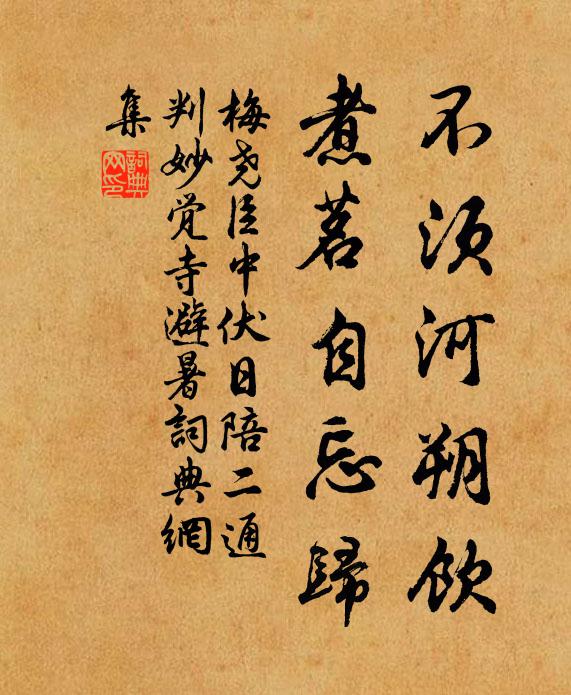 不須河朔飲
煮茗自忘歸
梅尧臣中伏日陪二通
判妙觉寺避暑詞典網
集
詞典
网印